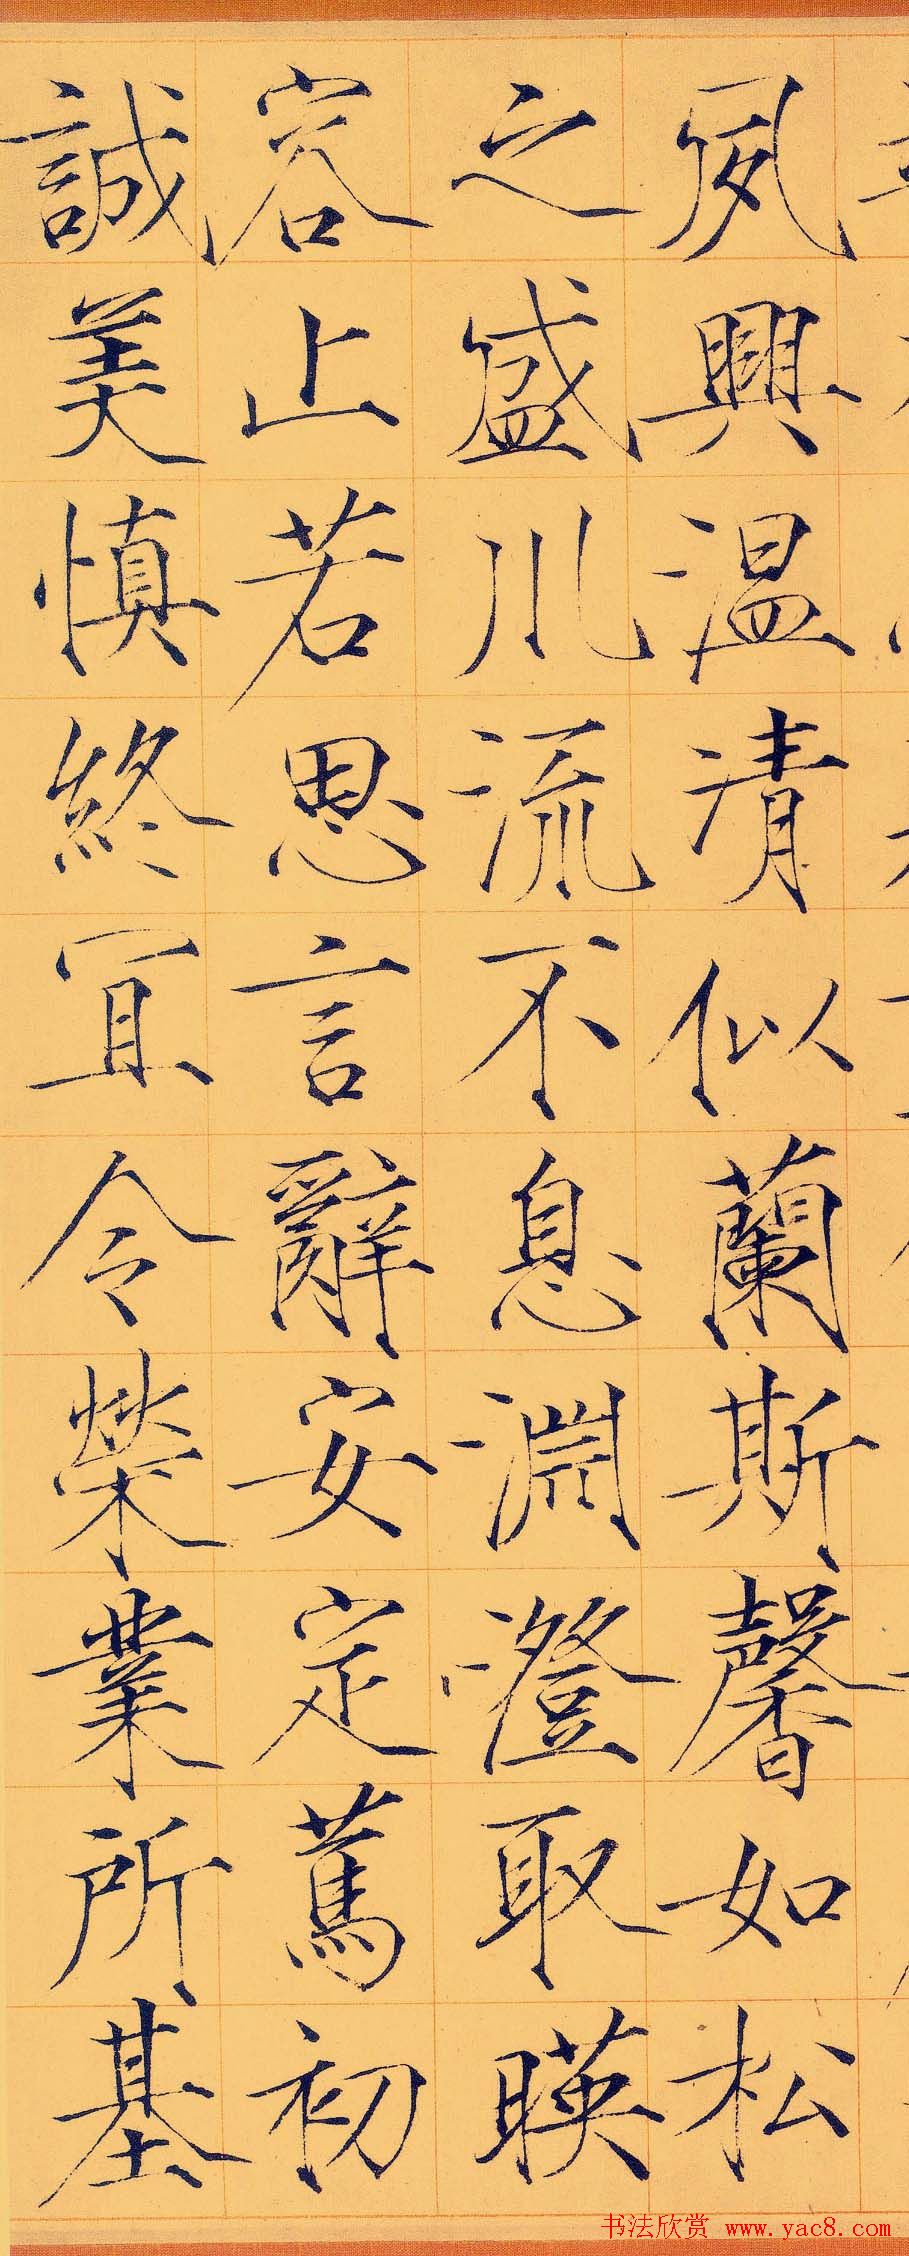 夙興温清似蘭斯馨如松
之盛川流不息淵澄取暎
容止若思言辭安定篤初
誠美慎終宜令榮業所基
书法欣赏 www.yac8.com